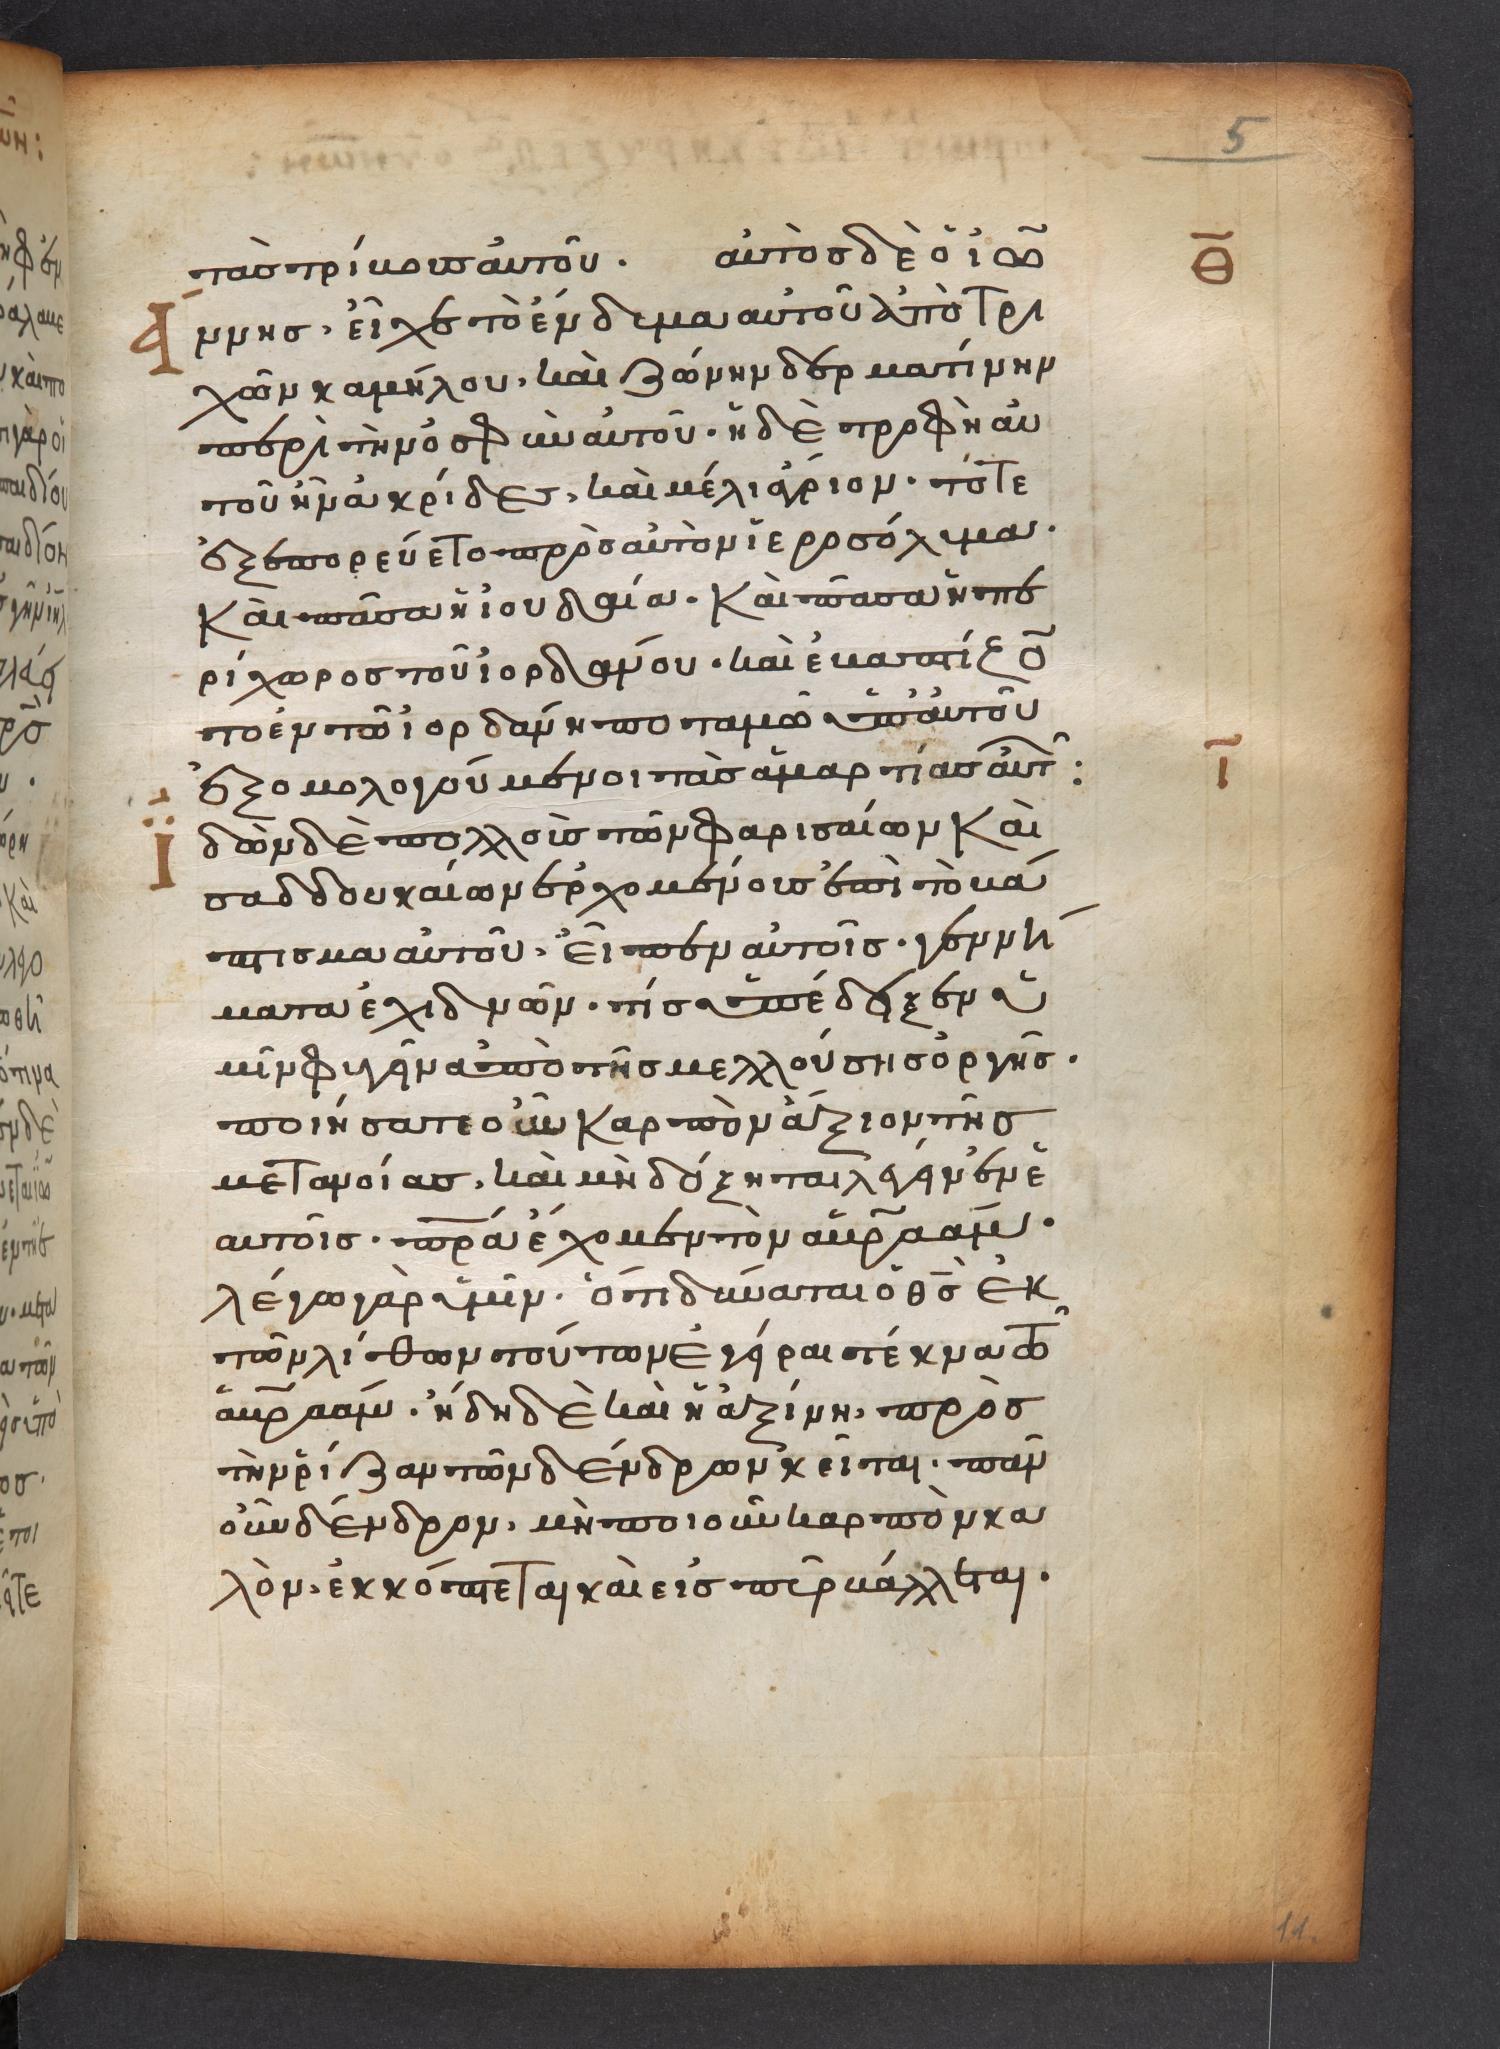 5
τὰσ τρίβουσ αὐτοῦ. αὐτὸσ δὲ ὁ ἰω
θ
ννησ, εἶχε τὸ ἔνδυμα αὐτοῦ ἀπὸ τρι
χῶν καμήλου, καὶ ζώνην δερματίνην
περὶ τὴν ὀσφὺν αὐτοῦ. ἡ δὲ τροφὴ αὐ
τοῦ ἦν ἀκρίδεσ, καὶ μέλι ἄγριον. τότε
ἐξεπορεύετο πρὸσ αὐτὸν ἱεροσόλυμα.
Καὶ πᾶσα ἡ ἰουδαία. Καὶ πᾶσα ἡ πε
ρίχωροσ τοῦ ἰορδάνου. καὶ ἐβαπτίζο̅
το ἐν τῶ ἰορδάνη ποταμῶ ὑπ' αὐτοῦ
ἐξομολογούμενοι τὰσ ἁμαρτίασ αὐτ:
ι
Ϊδὼν δὲ πολλοὺσ τῶν φαρισαίων Καὶ
σαδδουκαίων ἐρχομένουσ ἐπὶ τὸ βά
πτισμα αὐτοῦ, εἶπεν αὐτοῖσ. γεννή
ματα ἐχιδνῶν. τίσ ὑπέδειξεν ὑ
μῖν φυγεῖν ἀπὸ τῆσ μελλούσησ ὀργῆσ.
ποιήσατε οὖν Καρπὸν ἄξιον τῆσ
μετανοίασ, καὶ μὴ δόξηται λέγειν ἐν ἑ
αυτοῖσ. π̅ρ̅α ἔχομεν τὸν ἁβρ̅αάμ.
λέγω γὰρ ὑμῖν. ὅτι δύναται ὁ θ̅σ̅ ἐκ
τῶν λίθων τούτων ἐγεῖραι τέκνα τῶ
ἁβρ̅αάμ. ἤδη δὲ καὶ ἡ ἀξίνη, πρὸσ
τὴν ῥίζαν τῶν δένδρων κεῖται. πᾶν
οὖν δένδρον, μὴ ποιοῦν καρπὸν κα
λὸν, ἐκκόπτεται καὶ εἰσ πῦρ βάλλεται.
11.